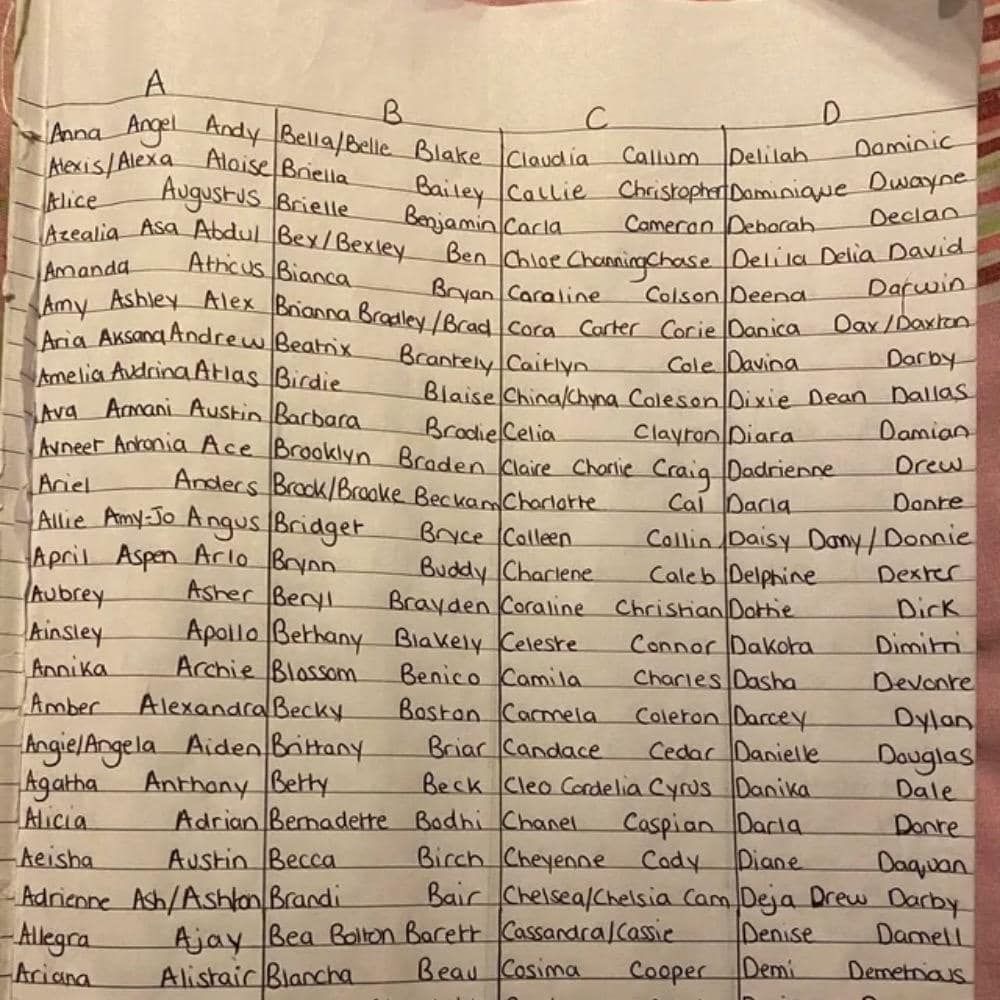 A B C D
Anna Angel Andy Bella/Belle Blake Claudia Callum Delilah Dominic
Alexis/Alexa Aloise Briella Bailey Callie Christopher Dominique Dwayne
Alice Augustus Brielle Benjamin Carla Cameron Deborah Declan
Azealia Asa Abdul Bex/Bexley Ben Chloe Channing Chase Delila Delia David
Amanda Atticus Bianca Bryan Caraline Colson Deena Darwin
Amy Ashley Alex Brianna Bradley/Brad Cora Carter Corie Danica Dax/Daxton
Aria Aksana Andrew Beatrix Brantely Caitlyn Cole Davina Darby
Amelia Audrina Atlas Birdie Blaise China/Chyna Coleson Dixie Dean Dallas
Ava Armani Austin Barbara Brodie Celia Clayton Diara Damian
Avneet Antonia Ace Brooklyn Braden Claire Charlie Craig Dadrienne Drew
Ariel Anders Brook/Brooke Beckam Charlotte Cal Darla Donte
Allie Amy-Jo Angus Bridget Bryce Colleen Collin Daisy Dony/Donnie
April Aspen Arlo Brynn Buddy Charlene Caleb Delphine Dexter
Aubrey Asher Beryl Brayden Coraline Christian Dottie Dick
Ainsley Apollo Bethany Blakely Celeste Connor Dakota Dimitri
Annika Archie Blossom Benico Camila Charles Dasha Devonte
Amber Alexandra Becky Boston Carmela Coleton Darcey Dylan
Angie/Angela Aiden Brittany Briar Candace Cedar Danielle Douglas
Agatha Anthony Betty Beck Cleo Cordelia Cyrus Danika Dale
Alicia Adrian Bernadette Bodhi Chanel Caspian Darla Donte
Aeisha Austin Becca Birch Cheyenne Cody Diane Daquan
Adrienne Ash/Ashton Brandi Bair Chelsea/Chelsia Cam Deja Drew Darby
Allegra Ajay Bea Bolton Barett Cassandra/Cassie Denise Darnell
Ariana Alistair Blancha Beau Cosima Cooper Demi Demetrious